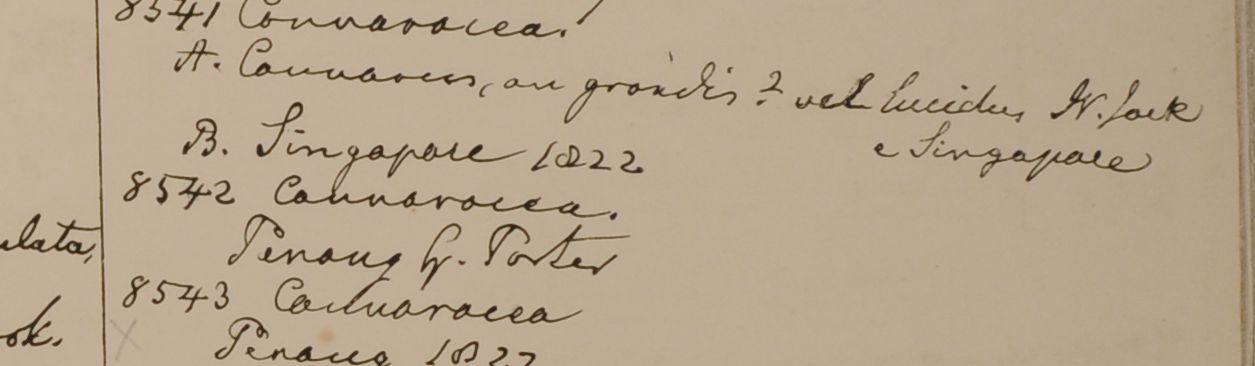 8541 Connaracea.
A. Connarus, an grandis? vel lucidus W. Jack
e Singapore
B. Singapore 1822
8542 Connaracea.
Penang G. Porter
8543 Connaracea
Penang 1822
ulata,
ok.